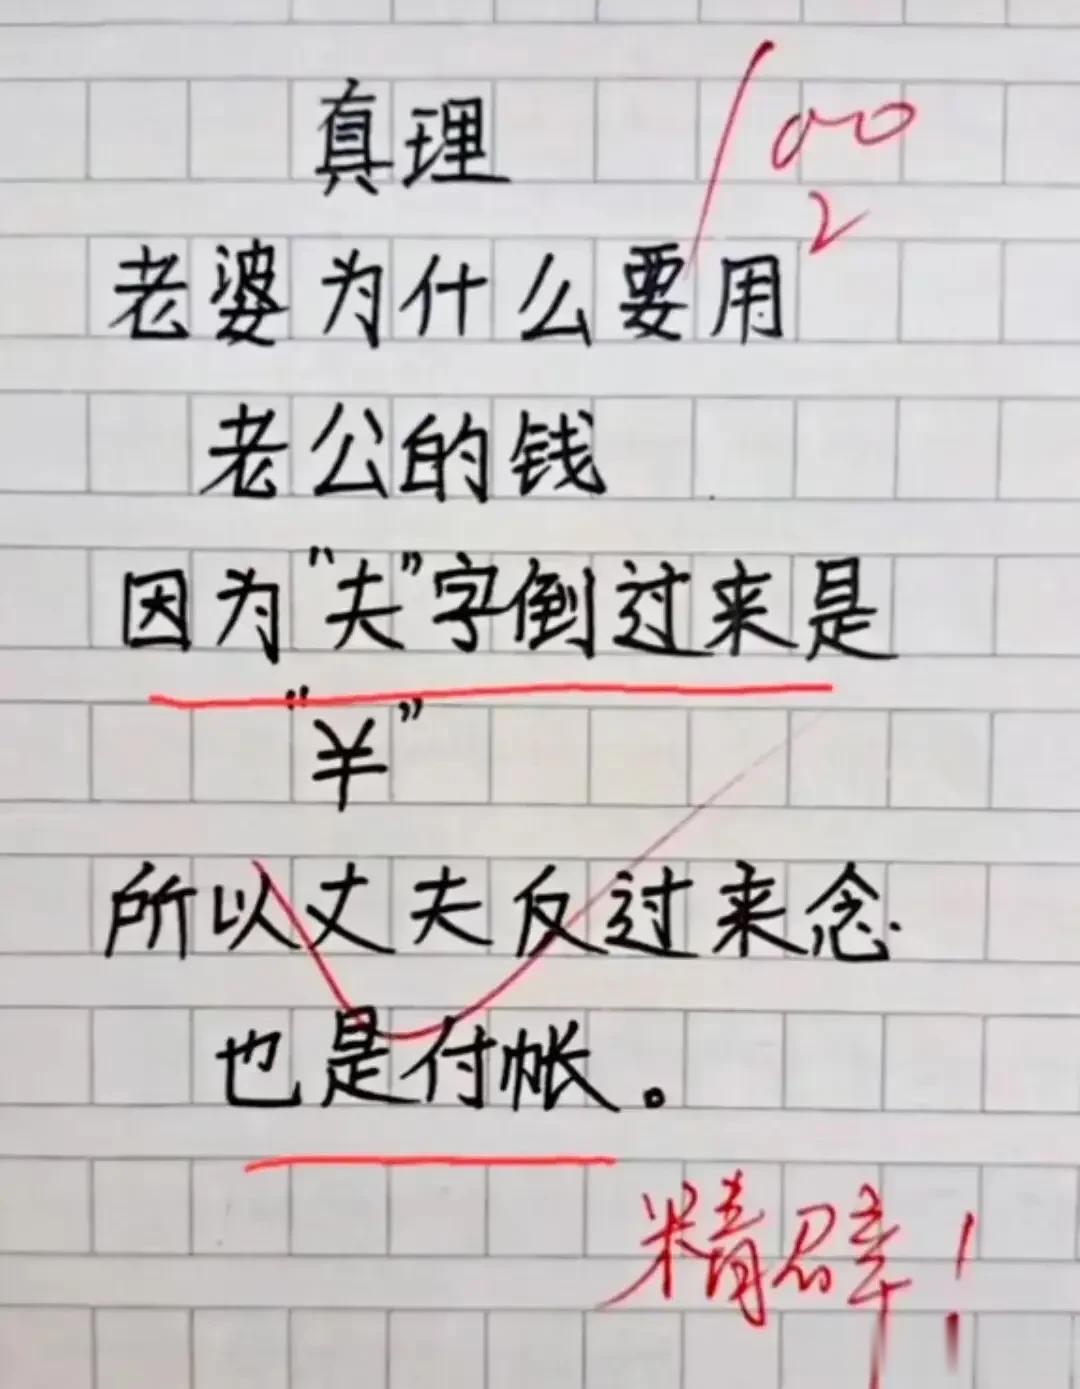 真理
100
2
老婆为什么要用
老公的钱
因为“夫”字倒过来是
“¥”
所以丈夫反过来念
也是付帐。
精辟！